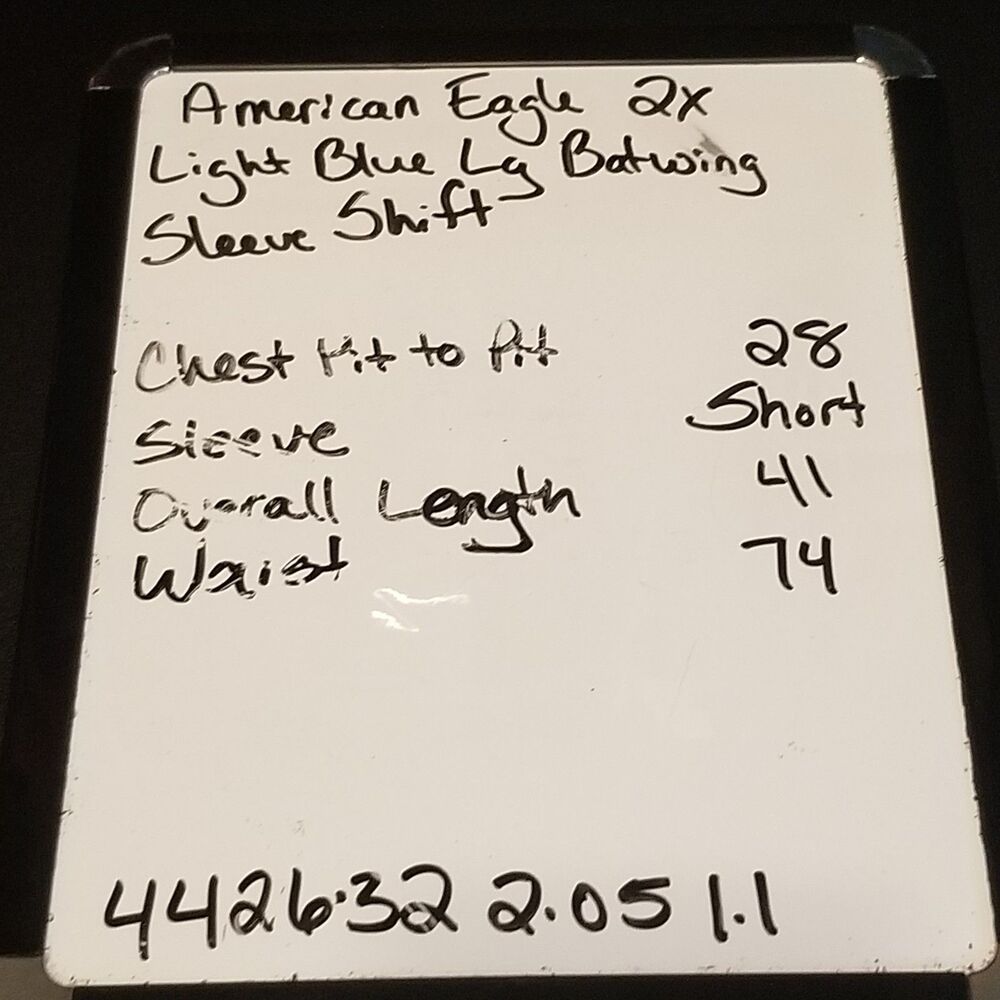 American Eagle 2x
Light Blue Lg Batwing
Sleeve Shift
Chest Pit to Pit 28
Sleeve Short
Overall Length 41
Waist 74
4426·32 2.05 1.1